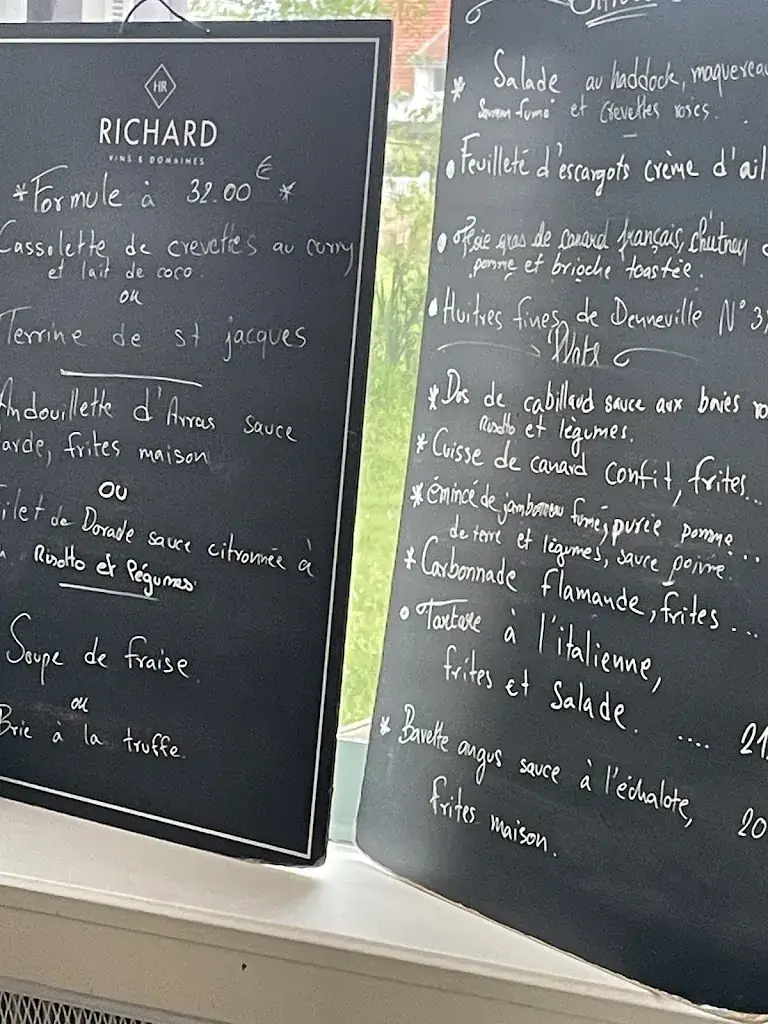 HR
RICHARD
VINS & DOMAINES
*Formule à 32.00€ *
Cassolette de crevettes au curry
et lait de coco.
ou
Terrine de st jacques
Andouillette d'Arras sauce
arde, frites maison
OU
ilet de Dorade sauce citronnée à
Risotto et légumes
Soupe de fraise
ou
Brie à la truffe
* Salade au haddock, maquereau
Saumon fumé et crevettes roses.
• Feuilleté d'escargots crème d'ail
• Foie gras de canard français, chutney
pomme et brioche toastée.
• Huitres fines de Denneville N°3
Plats
* Dos de cabillaud sauce aux baies ro
Risotto et légumes.
* Cuisse de canard confit, frites...
* émincé de jambonneau fumé, purée pomme...
de terre et légumes, sauce poivre.
* Carbonnade flamande, frites ...
• Tartare à l'italienne,
frites et Salade. .... 21
* Bavette angus sauce à l'échalote,
frites maison. 20